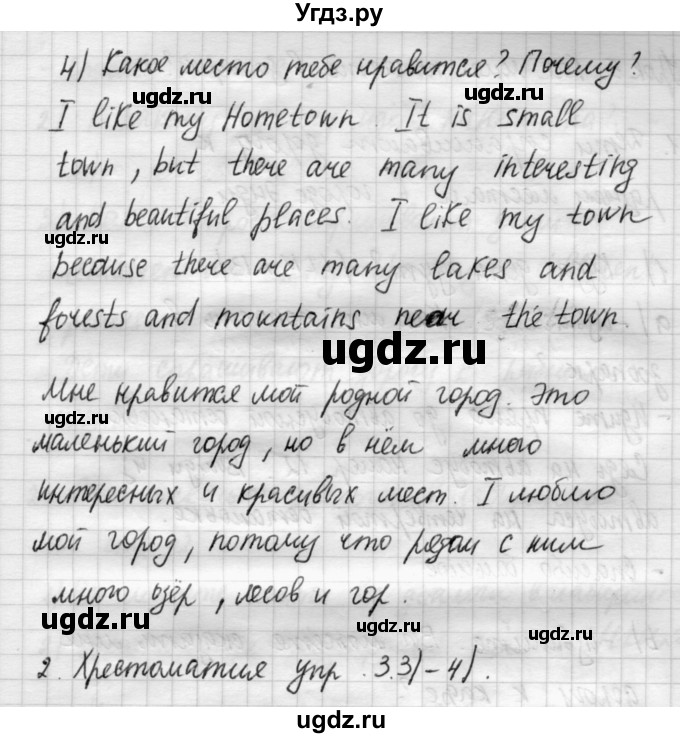 Угдз.ру
4) Какое место тебе нравится? Почему?
ugdz.ru ugdz.ru
I like my Hometown. It is small
town, but there are many interesting
and beautiful places. I like my town
ugdz.ru
because there are many lakes and
forests and mountains near the town.
ugdz.ru ugdz.ru
Мне нравится мой родной город. Это
маленький город, но в нём много
ugdz.ru
интересных и красивых мест. I люблю
мой город, потому что рядом с ним
много озёр, лесов и гор.
ugdz.ru
2. Хрестоматия упр. 3.3)-4).
ugdz.ru ugdz.ru
ugdz.ru